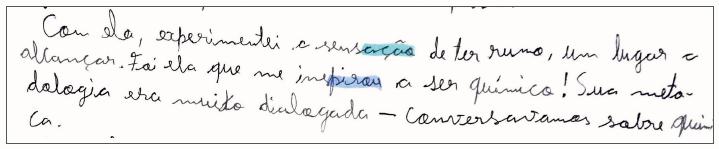 Com ela, experimentei a sensação de ter rumo, um lugar a
alcançar. Foi ela que me inspirou a ser químico! Sua meto-
dologia era muito dialogada – conversavamos sobre quími
ca.